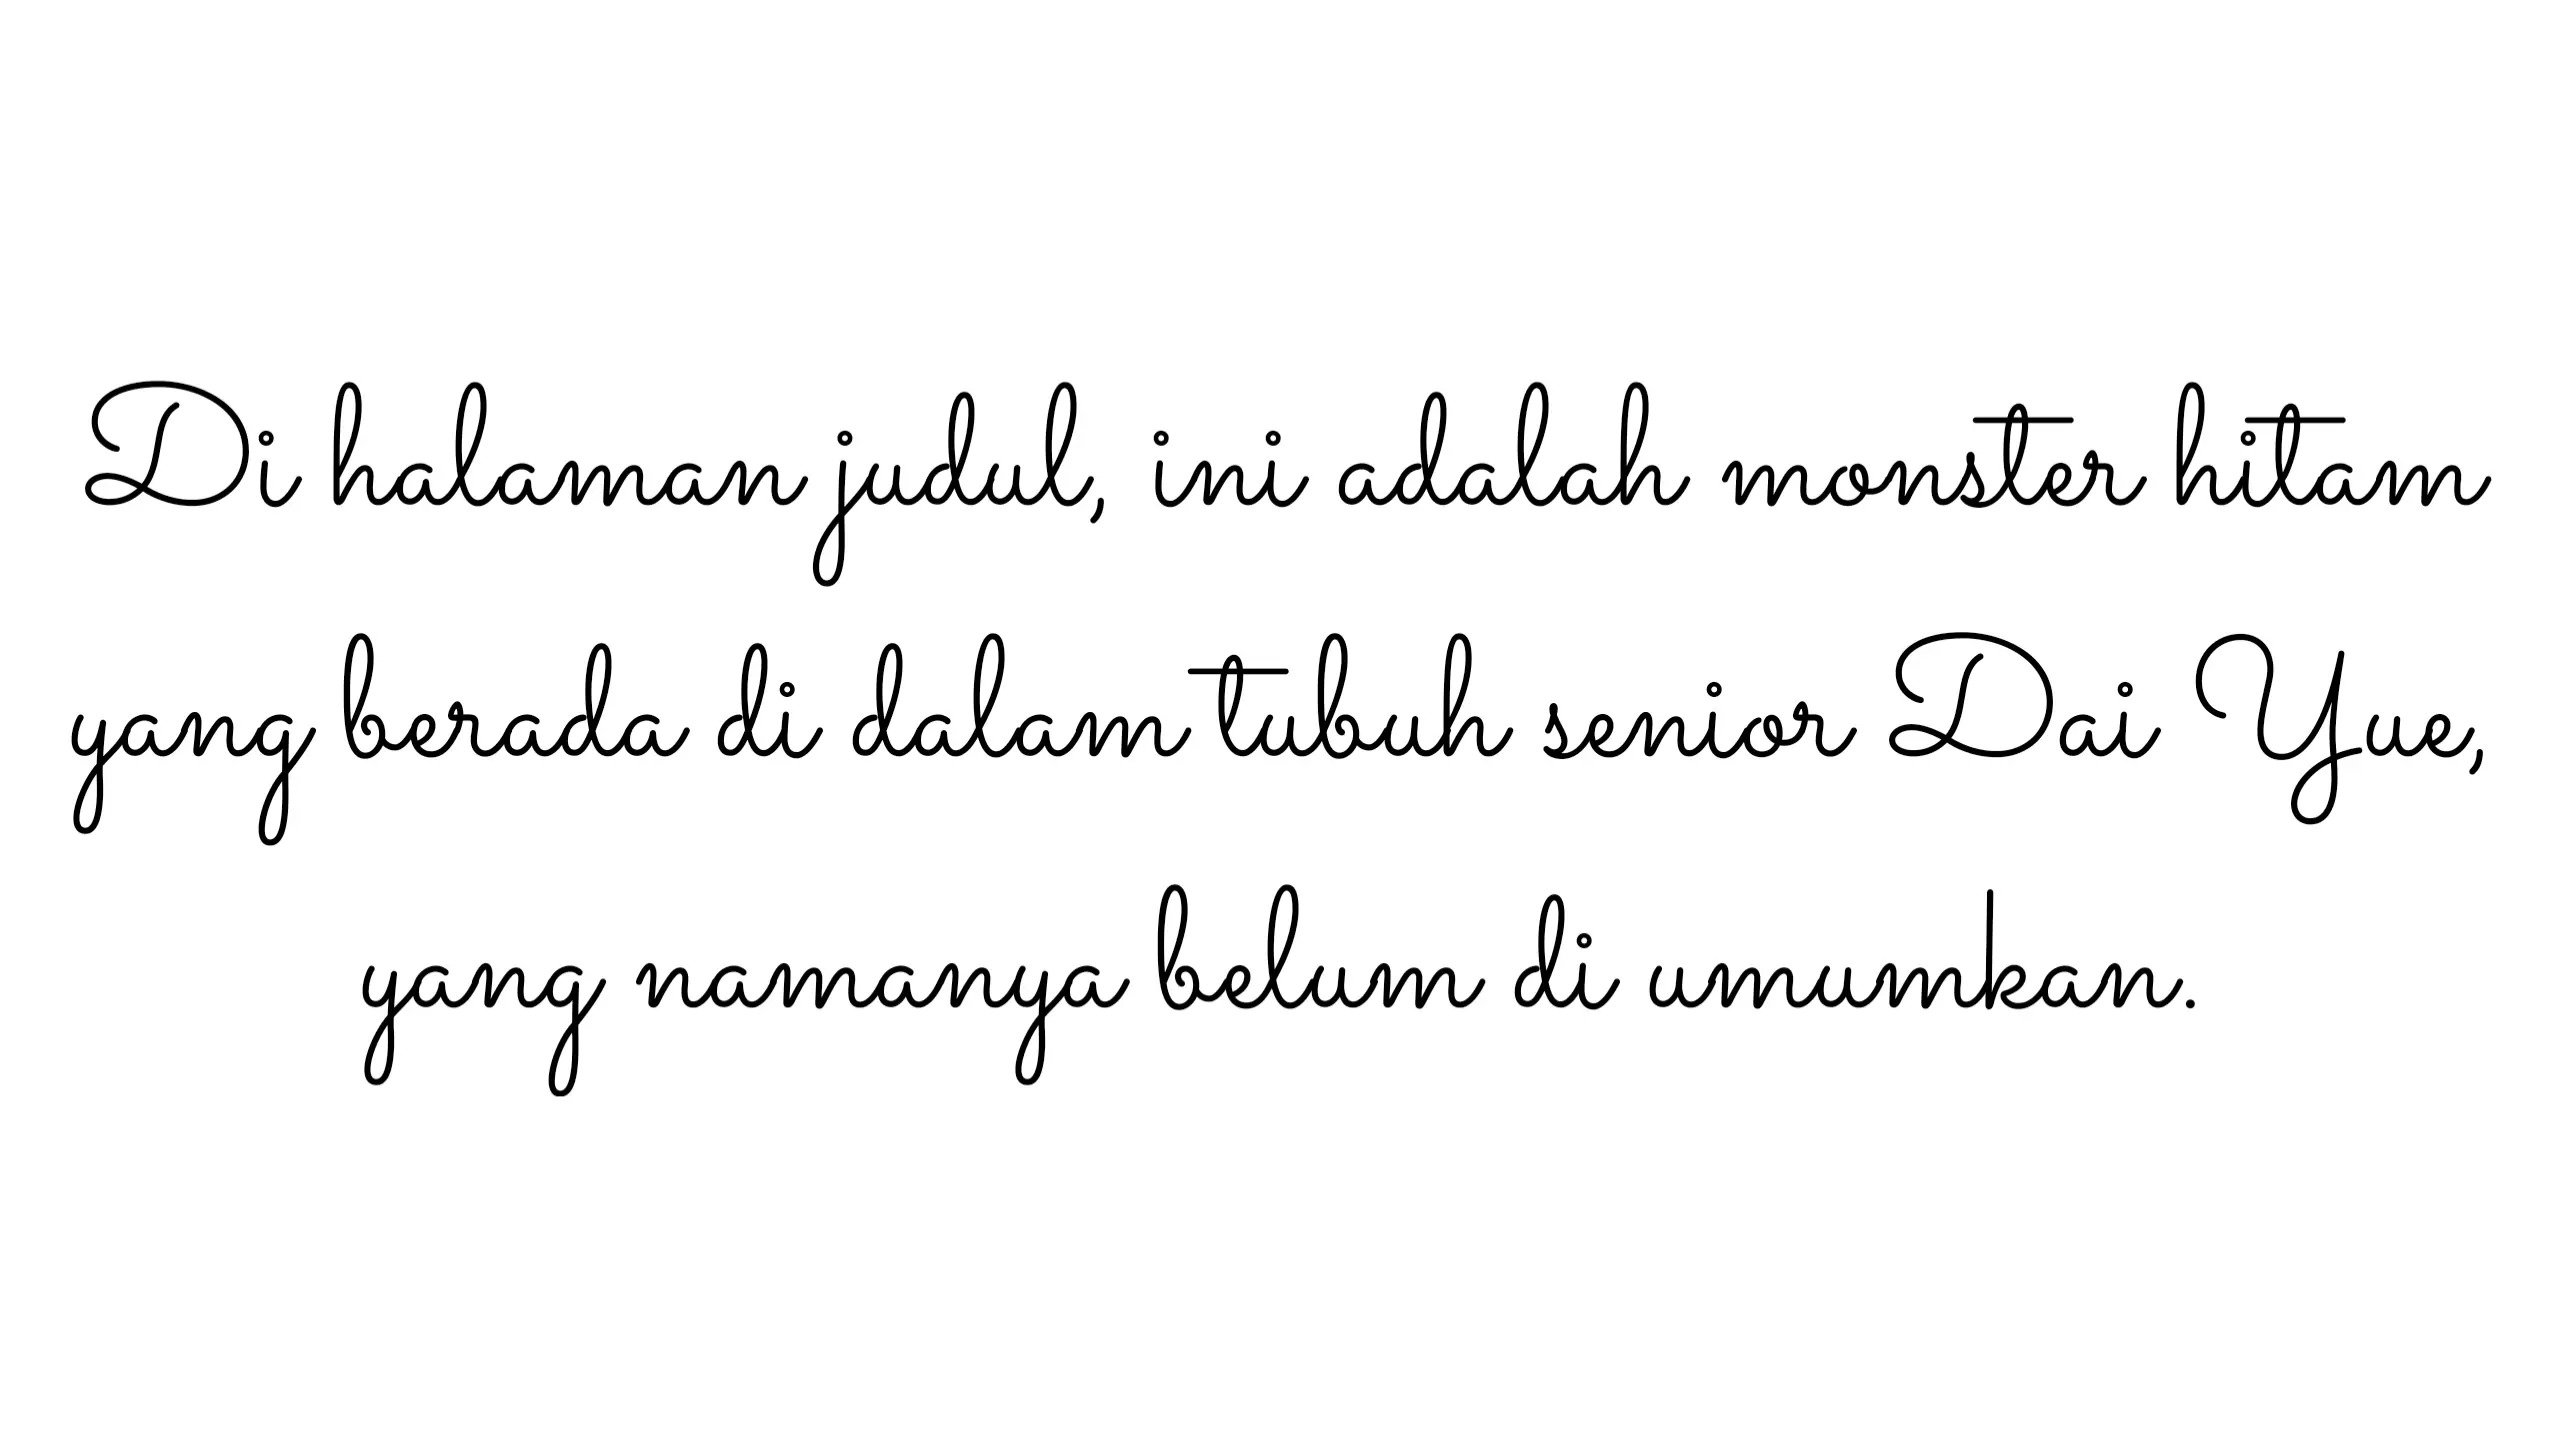 Di halaman judul, ini adalah monster hitam
yang berada di dalam tubuh senior Dai Yue,
yang namanya belum di umumkan.